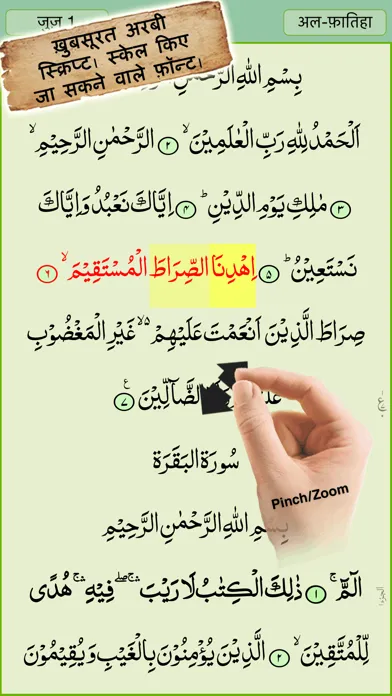 जुज़ 1
अल-फ़ातिहा
ख़ुबसूरत अरबी
स्क्रिप्ट। स्केल किए
जा सकने वाले फ़ॉन्ट।
بِسْمِ اللّٰهِ الرَّحْمٰنِ
اَلْحَمْدُ لِلّٰهِ رَبِّ الْعٰلَمِيْنَ ۙ ٢ الرَّحْمٰنِ الرَّحِيْمِ ۙ
٣ مٰلِكِ يَوْمِ الدِّيْنِ ؕ ٤ اِيَّاكَ نَعْبُدُ وَاِيَّاكَ
نَسْتَعِيْنُ ؕ ٥ اِهْدِنَا الصِّرَاطَ الْمُسْتَقِيْمَ ۙ ٦
صِرَاطَ الَّذِيْنَ اَنْعَمْتَ عَلَيْهِمْ ۙ۬ غَيْرِ الْمَغْضُوْبِ
الضَّآلِّيْنَ ٧ ع
سُورَة البَقَرَة
بِسْمِ اللّٰهِ الرَّحْمٰنِ الرَّحِيْمِ
Pinch/Zoom
الٓمّٓ ۚ ١ ذٰلِكَ الْكِتٰبُ لَا رَيْبَ ۛۚ ۖ فِيْهِ ۛۚ هُدًى
لِّلْمُتَّقِيْنَ ۙ ٢ الَّذِيْنَ يُؤْمِنُوْنَ بِالْغَيْبِ وَيُقِيْمُوْنَ